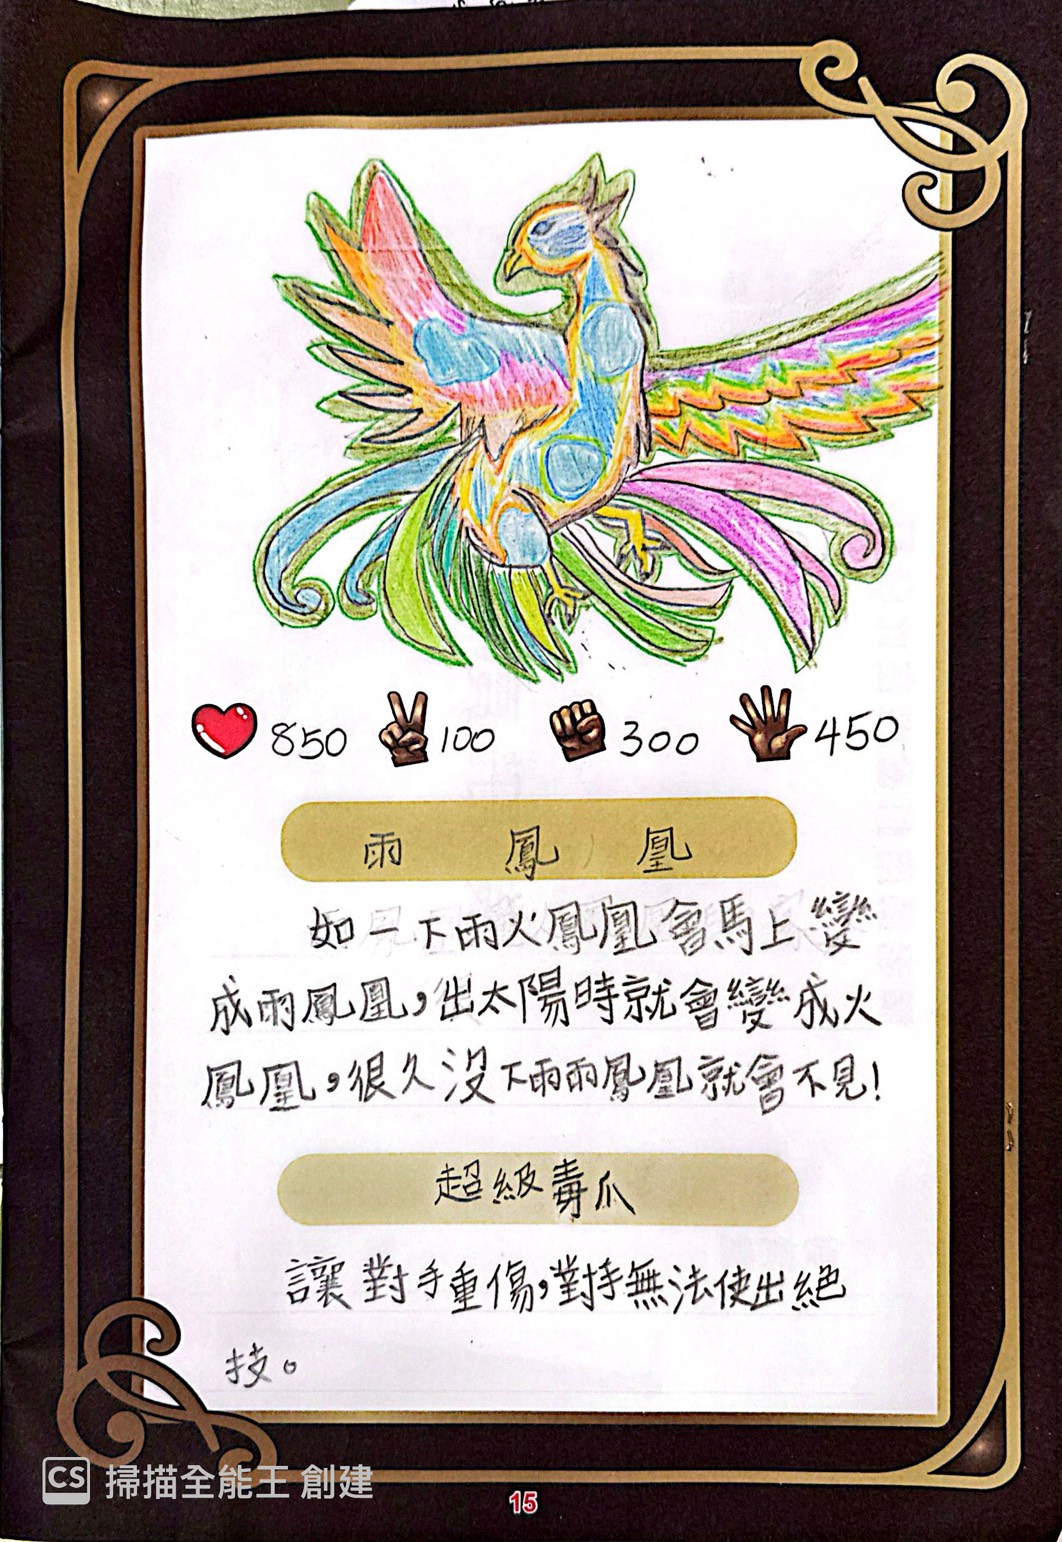 850 100 300 450
雨 鳳 凰
如一下雨火鳳凰會馬上變
成雨鳳凰,出太陽時就會變成火
鳳凰,很久沒下雨雨鳳凰就會不見!
超級毒爪
讓對手重傷,對手無法使出絕
技。
CS 掃描全能王 創建
15